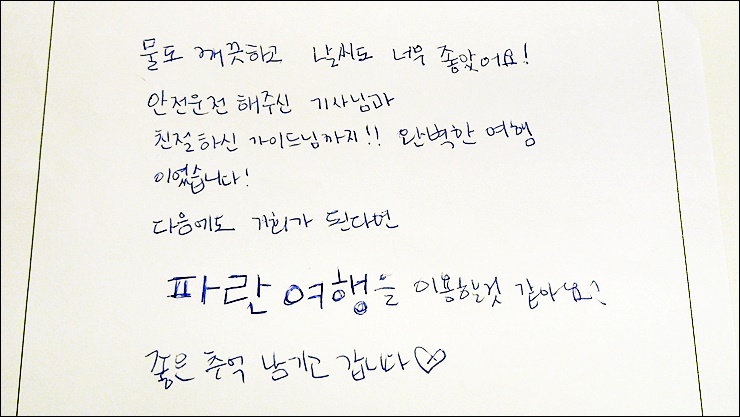 물도 깨끗하고 날씨도 너무 좋았어요!
안전운전 해주신 기사님과
친절하신 가이드님까지!! 완벽한 여행
이었습니다!
다음에도 기회가 된다면
파란여행을 이용할것 같아요!
좋은 추억 남기고 갑니다♡